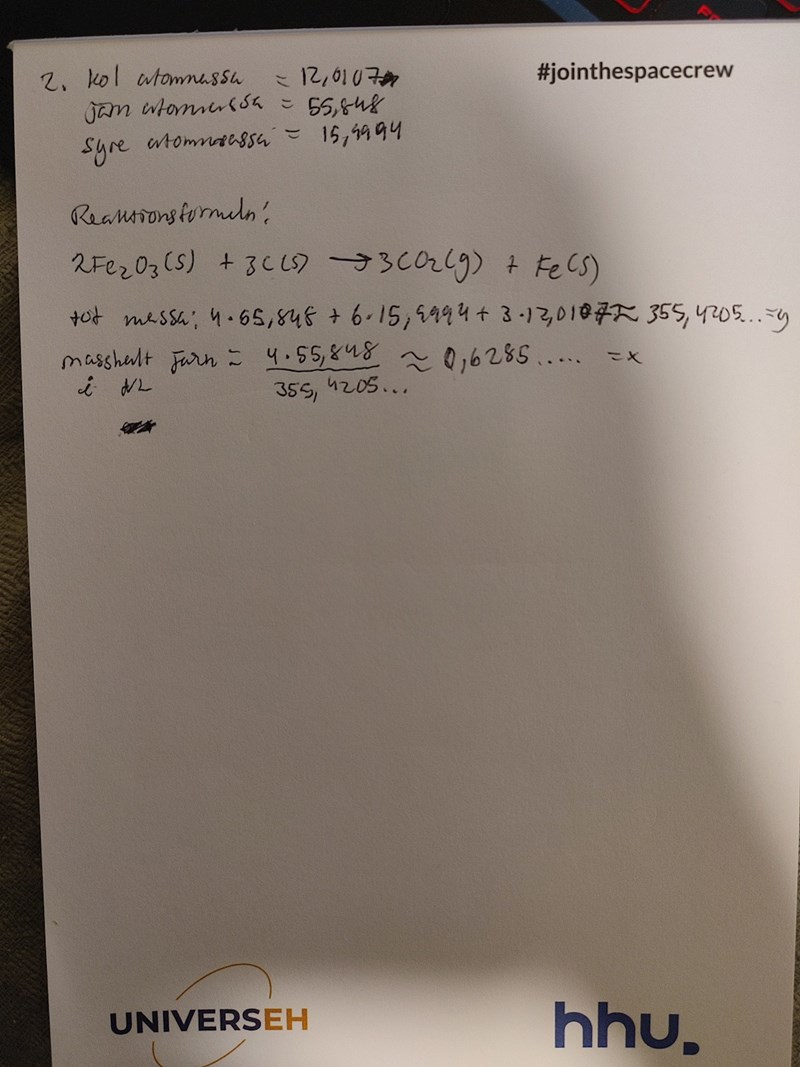 #jointhespacecrew
2. kol atommassa = 12,0107
järn atommassa = 55,848
syre atommassa = 15,9994
Reaktionsformeln:
2Fe₂O₃(s) + 3C(s) → 3CO₂(g) + Fe(s)
tot massa: 4·55,848 + 6·15,9994 + 3·12,0107 ≈ 355,4205... = y
masshalt järn = 4·55,848 / 355,4205... ≈ 0,6285..... = x
i
UNIVERSEH
hhu.